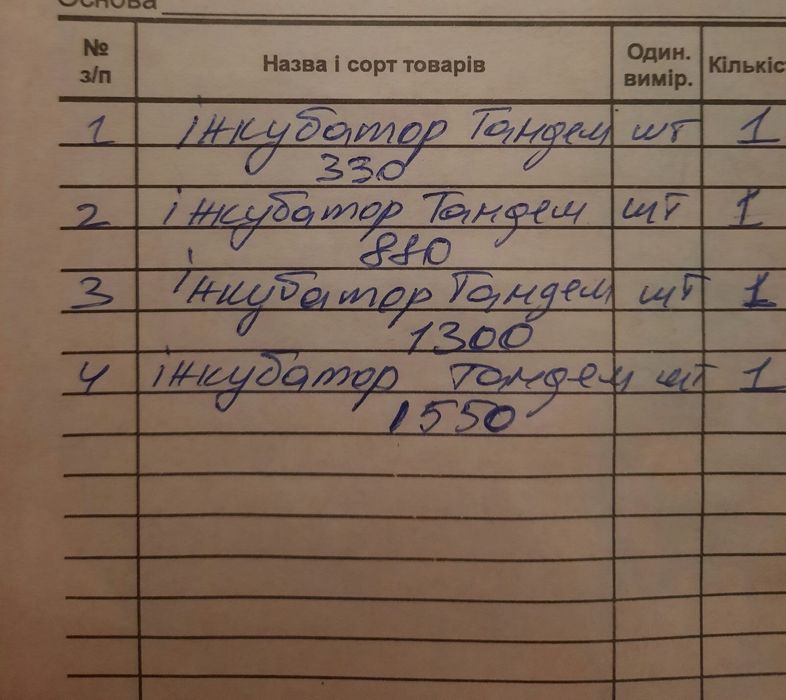 Основа
№ з/п Назва і сорт товарів Один. вимір. Кількіс
1 інкубатор Тандем шт 1
330
2 інкубатор Тандем шт 1
880
3 інкубатор Тандем шт 1
1300
4 інкубатор тандем шт 1
1550